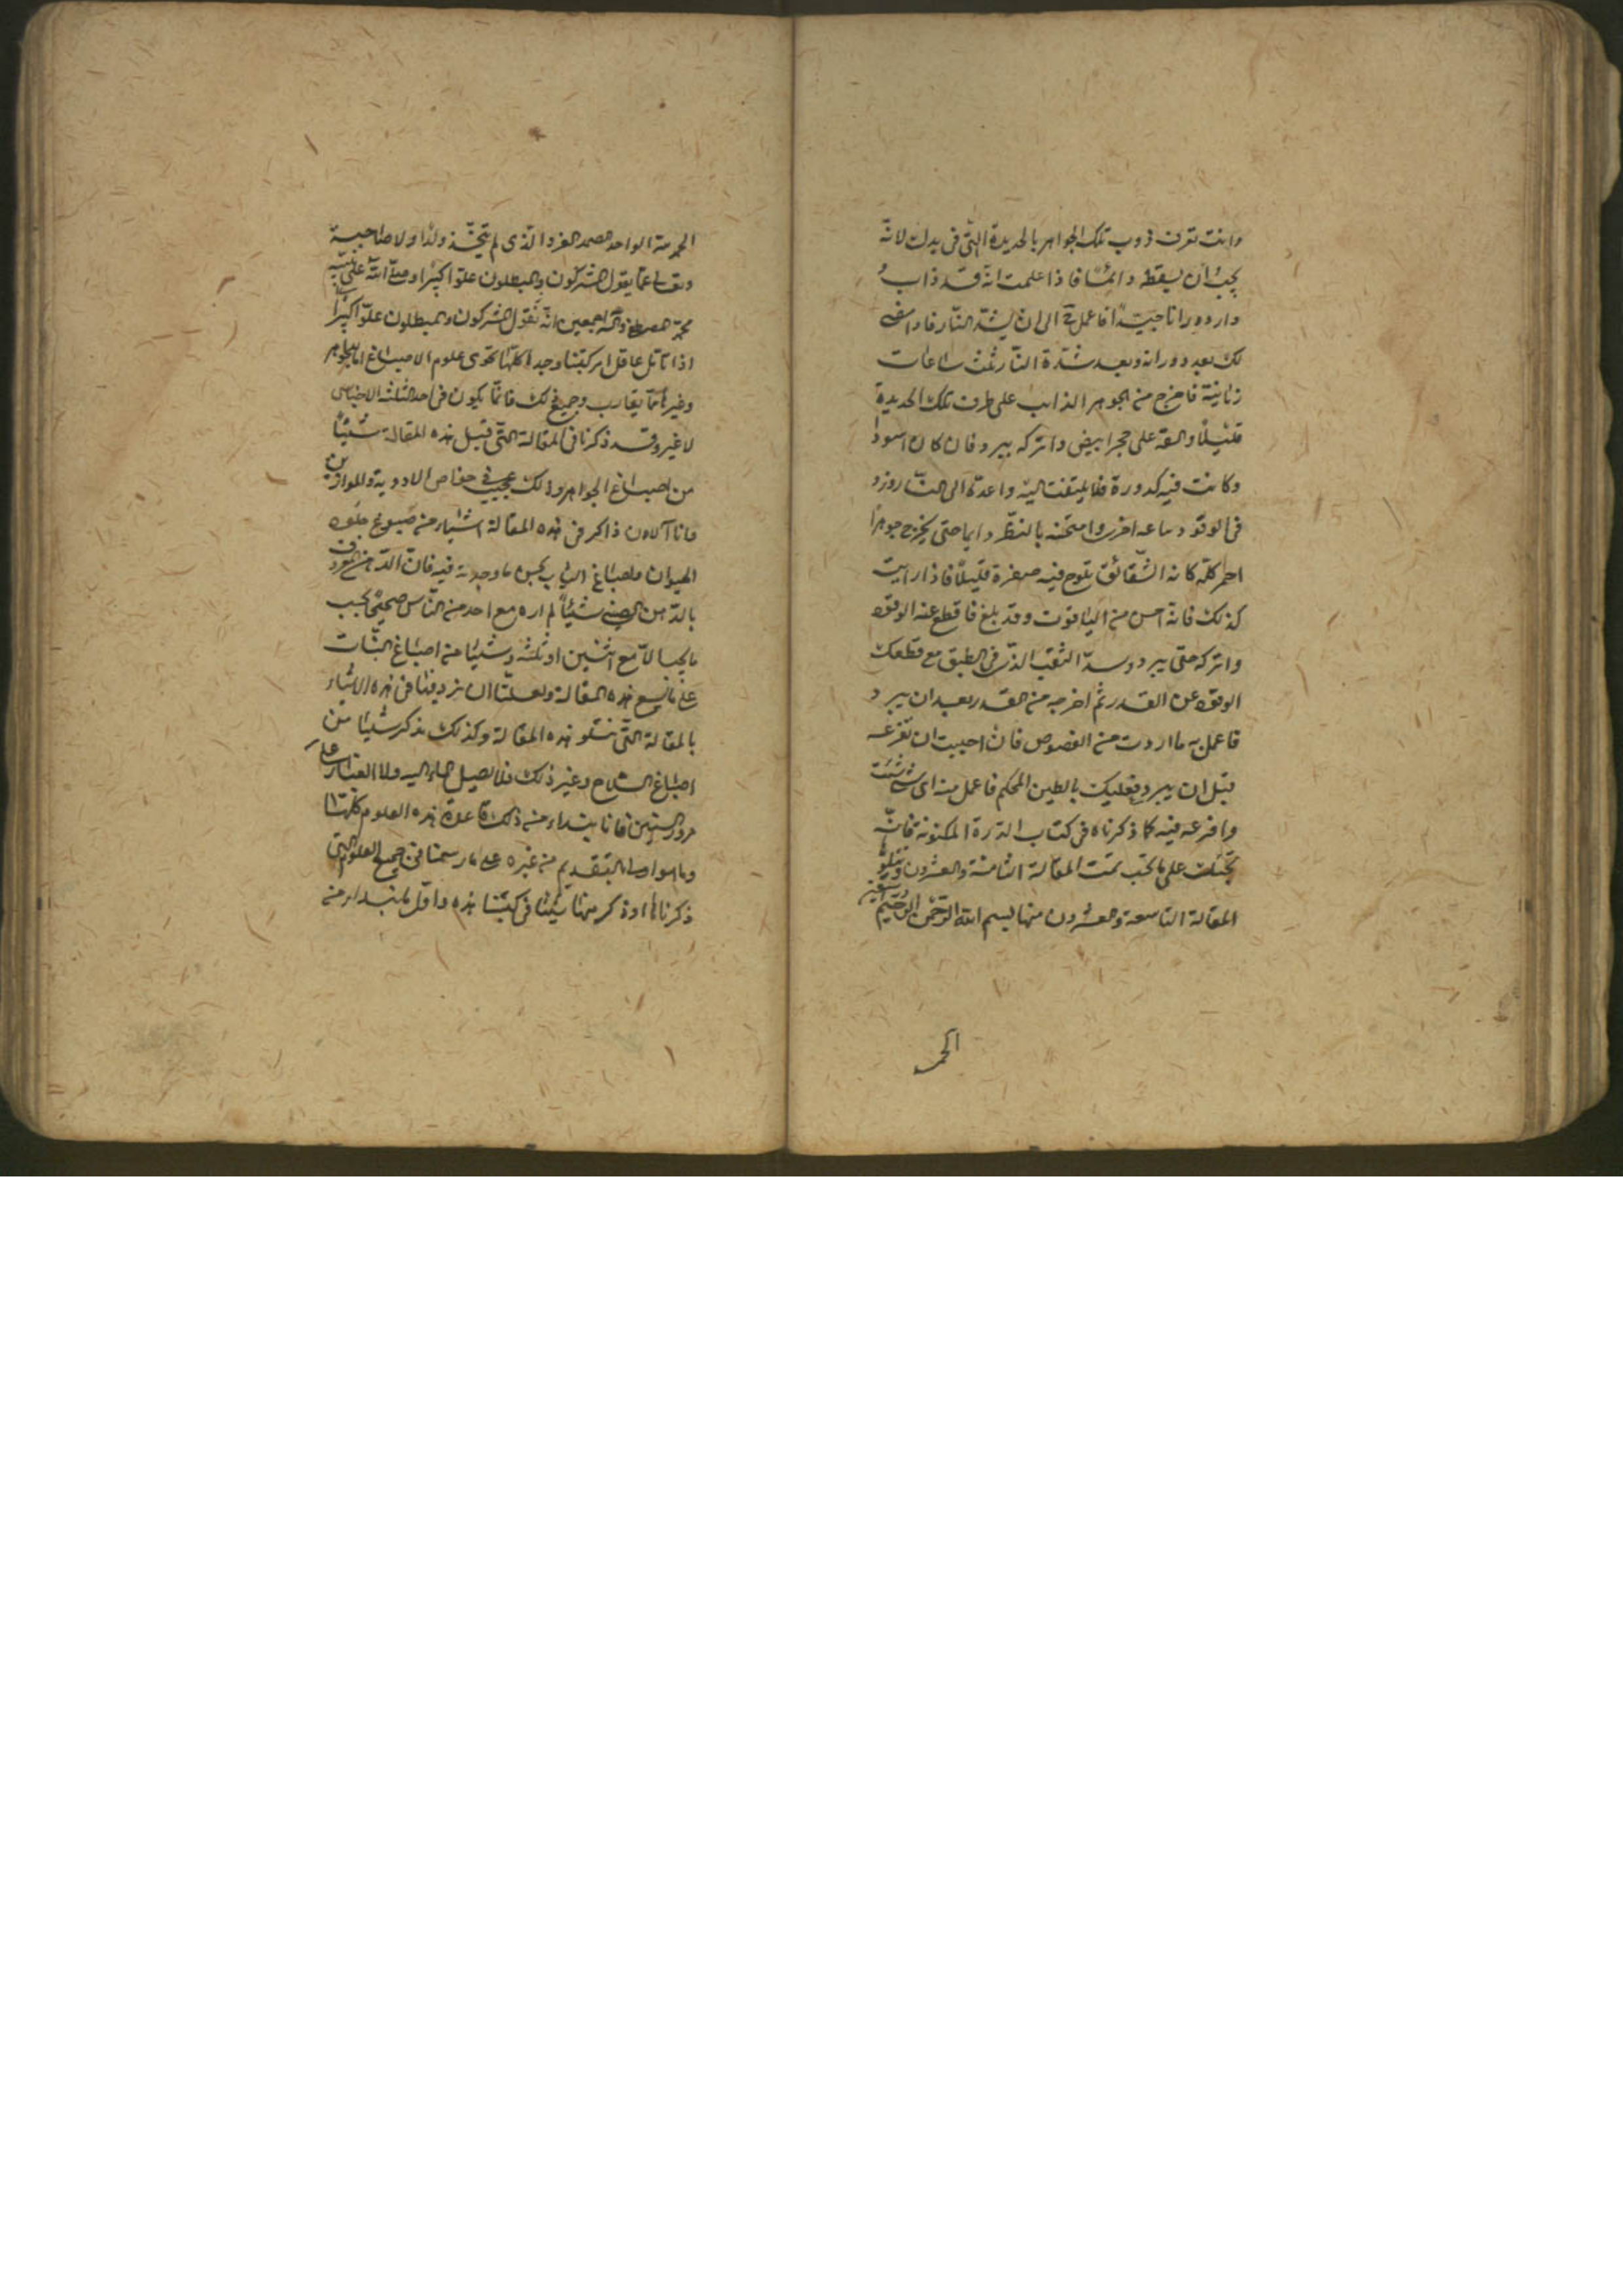 وانت تعرف ذوب تلك الجواهر بالحديدة التى فى يدك لانه
يجب ان يسقط دائما فاذا علمت انه قد ذاب
ودار دورانا جيدا فاعمل الى ان يشتد النار فاذا مضى
لك بعد دورانه وبعد شدة النار ثلث ساعات
زمانية فاخرج من الجوهر الذائب على طرف تلك الحديدة
قليلا والقه على حجر ابيض واتركه يبرد فان كان اسود
وكانت فيه كدورة فلا يلتفت اليه واعده الى النار وزد
فى الوقود ساعه اخرى وامتحنه بالنظر دايما حتى يخرج جوهرا
احمر كله كانه الشقائق يلوح فيه صفرة قليلا فاذا رايت
كذلك فانه احسن من الياقوت وقد بلغ فاقطع عنه الوقود
واتركه حتى يبرد وسد الثقب الذى فى الطبق مع قطعك
الوقود عن القدر ثم اخرجه من القدر بعد ان يبرد
فاعمل به ما اردت من الفصوص فان احببت ان تفرغه
قبل ان يبرد فعليك بالطين المحكم فاعمل منه اى شئ شئت
وافرغه فيه كما ذكرناه فى كتاب الدرة المكنونة فانه
يجيئك على ما تحب تمت المقالة الثامنة والعشرون ويتلوه
المقالة التاسعة والعشرون منها بسم الله الرحمن الرحيم
الحمد
الحمد لله الواحد الصمد الفرد الذى لم يتخذ ولدا ولا صاحبة
وتعالى عما يقول المشركون والمبطلون علوا كبيرا وصلى الله على نبيه
محمد المصطفى وآله اجمعين انه تقول المشركون والمبطلون علوا كبيرا
اذا تامل عاقل امر كتبنا وجدها كلها تحوى علوم الاصباغ اما للجواهر
وغيرها مما يقارب وجميع ذلك فانما يكون فى احد الثلثة الاجناس
لا غير وقد ذكرنا فى المقالة التى قبل هذه المقالة شيئا
من اصباغ الجواهر وذلك عجيب فى خواص الادوية والموازين
فانا الان ذاكر فى هذه المقالة اشياء من صبوغ جلود
الحيوان واصباغ الثياب بحسن ما وجدته فيه فان الدهن المعروف
بالدهن الصينى شيئا لم اره مع احد من الناس صحيحا كسب
ما يجب الا مع اثنين او ثلثه وشيئا من اصباغ النبات
على ما يسع هذه المقالة ولعلنا ان نزد فيها فى هذه الاشياء
بالمقالة التى تتلو هذه المقالة وكذلك نذكر شيئا من
اصباغ السلاح وغير ذلك فلا يصل الماء اليه ولا الغبار على
مرور السنين فانا نبتداء من ذلك قاعدة هذه العلوم كلها
وما هو اصل بالتقديم من غيره على ما رسمنا فى جميع العلوم التى
ذكرناها او ذكر منها شيئا فى كتبنا هذه واول ما نبداء منه